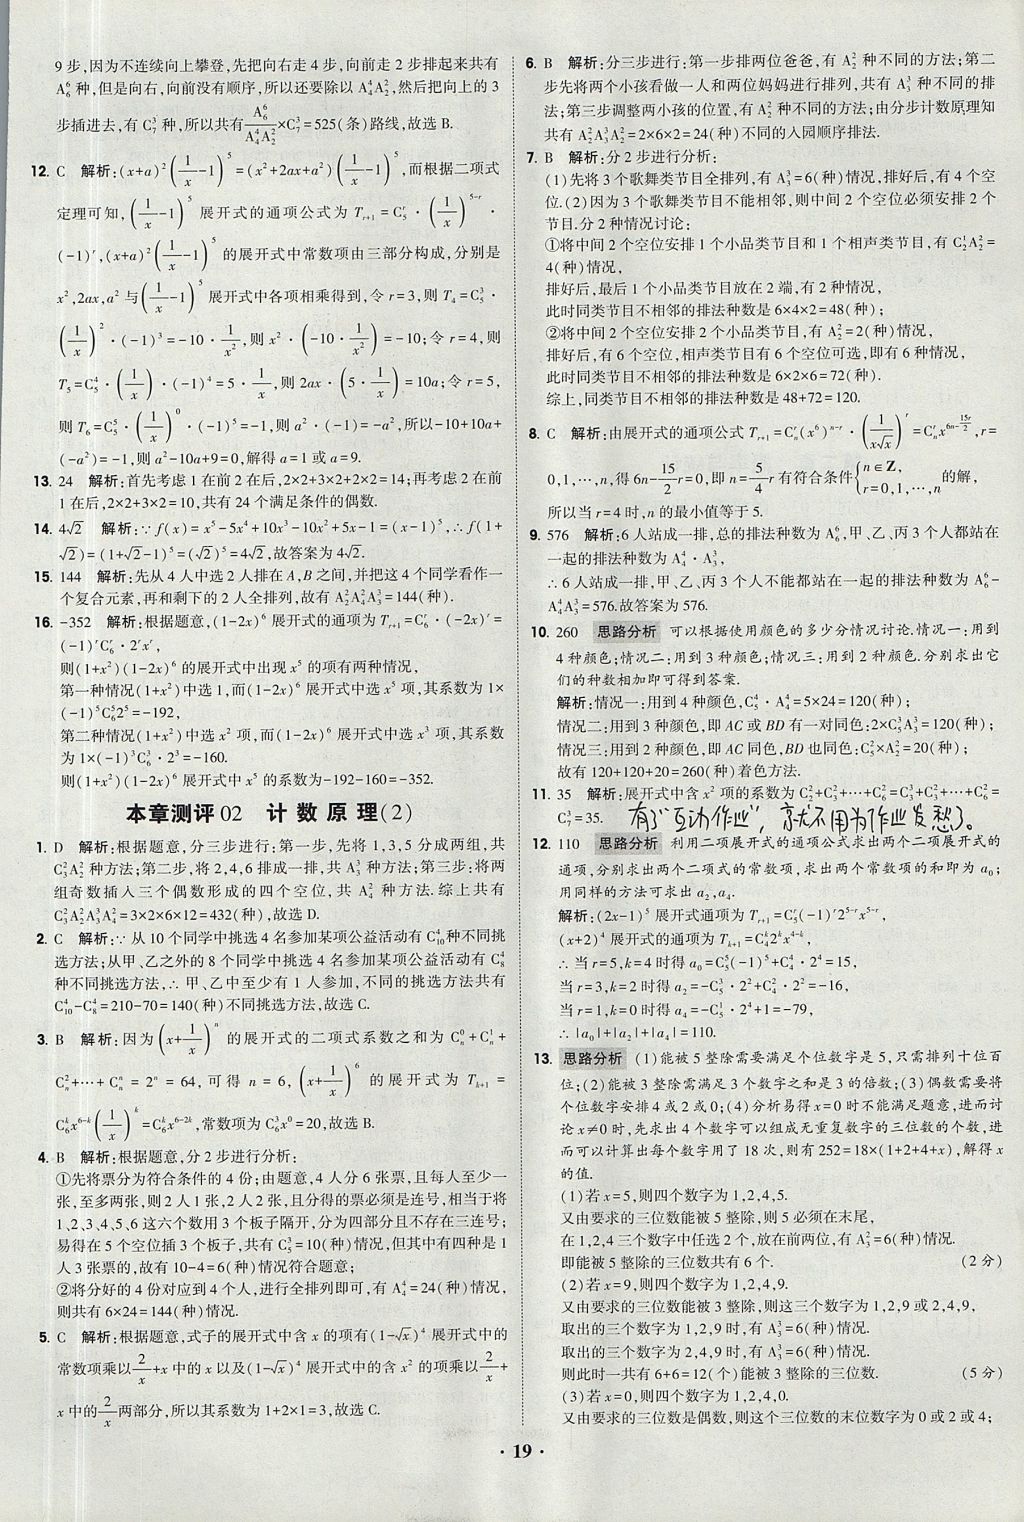 9 步,因为不连续向上攀登,先把向右走 4 步,向前走 2 步排起来共有
A₆⁶ 种,但是向右,向前没有顺序,所以还要除以 A₄⁴A₂²,然后把向上的 3
步插进去,有 C₇³ 种,所以共有 A₆⁶/(A₄⁴A₂²)×C₇³=525(条)路线,故选 B.
12. C 解析:(x+a)²(1/x-1)⁵=(x²+2ax+a²)(1/x-1)⁵,而根据二项式
定理可知,(1/x-1)⁵ 展开式的通项公式为 Tᵣ₊₁=C₅ʳ·(1/x)⁵⁻ʳ·
(-1)ʳ,(x+a)²(1/x-1)⁵ 的展开式中常数项由三部分构成,分别是
x²,2ax,a² 与(1/x-1)⁵ 展开式中各项相乘得到,令 r=3,则 T₄=C₅³·
(1/x)²·(-1)³=-10·1/x²,则 x²·(-10·1/x²)=-10;令 r=4,则
T₅=C₅⁴·(1/x)·(-1)⁴=5·1/x,则 2ax·(5·1/x)=10a;令 r=5,
则 T₆=C₅⁵·(1/x)⁰·(-1)⁵=-1,则 a²·(-1)=-a²,所以-10+10a+
(-a²)=-1,则 a²-10a+9=0,解得 a=1 或 a=9.
13. 24 解析:首先考虑 1 在前 2 在后,2×2+3×2+2×2=14;再考虑 2 在前
1 在后,2×2+3×2=10,共有 24 个满足条件的偶数.
14. 4√2 解析:∵f(x)=x⁵-5x⁴+10x³-10x²+5x-1=(x-1)⁵,∴f(1+
√2)=(1+√2-1)⁵=(√2)⁵=4√2,故答案为 4√2.
15. 144 解析:先从 4 人中选 2 人排在 A,B 之间,并把这 4 个同学看作一
个复合元素,再和剩下的 2 人全排列,故有 A₂²A₄²A₃³=144(种).
16. -352 解析:根据题意,(1-2x)⁶ 展开式的通项为 Tᵣ₊₁=C₆ʳ·(-2x)ʳ=
(-1)ʳC₆ʳ·2ʳxʳ,
则(1+x²)(1-2x)⁶ 的展开式中出现 x⁵ 的项有两种情况,
第一种情况(1+x²)中选 1,而(1-2x)⁶ 展开式中选 x⁵ 项,其系数为 1×
(-1)⁵C₆⁵2⁵=-192,
第二种情况(1+x²)中选 x² 项,而(1-2x)⁶ 展开式中选 x³ 项,其系数
为 1×(-1)³C₆³·2³=-160.
则(1+x²)(1-2x)⁶ 展开式中 x⁵ 的系数为-192-160=-352.
本章测评 02 计数原理(2)
1. D 解析:根据题意,分三步进行:第一步,先将 1,3,5 分成两组,共
C₃²A₂² 种方法;第二步,将 2,4,6 排成一排,共 A₃³ 种方法;第三步,将两
组奇数插入三个偶数形成的四个空位,共 A₄² 种方法.综上共有
C₃²A₂²A₃³A₄²=3×2×6×12=432(种),故选 D.
2. C 解析:∵从 10 个同学中挑选 4 名参加某项公益活动有 C₁₀⁴种不同挑
选方法;从甲、乙之外的 8 个同学中挑选 4 名参加某项公益活动有 C₈⁴
种不同挑选方法,∴甲、乙中至少有 1 人参加,不同的挑选方法共有
C₁₀⁴-C₈⁴=210-70=140(种)不同挑选方法,故选 C.
3. B 解析:因为(x+1/x)ⁿ 的展开式的二项式系数之和为 Cₙ⁰+Cₙ¹+
Cₙ²+⋯+Cₙⁿ=2ⁿ=64,可得 n=6,(x+1/x)⁶ 的展开式为 Tₖ₊₁=
C₆ᵏx⁶⁻ᵏ(1/x)ᵏ=C₆ᵏx⁶⁻²ᵏ,常数项为 C₆³x⁰=20,故选 B.
4. B 解析:根据题意,分 2 步进行分析:
①先将票分为符合条件的 4 份;由题意,4 人分 6 张票,且每人至少一
张,至多两张,则 2 人 1 张,2 人 2 张,且分得的票必须是连号,相当于将
1、2、3、4、5、6 这六个数用 3 个板子隔开,分为四部分且不存在三连号;
易得在 5 个空位插 3 个板子,共有 C₅³=10(种)情况,但其中有四种是 1
人 3 张票的,故有 10-4=6(种)情况符合题意;
②将分好的 4 份对应到 4 个人,进行全排列即可,有 A₄⁴=24(种)情况,
则共有 6×24=144(种)情况.
5. C 解析:根据题意,式子的展开式中含 x 的项有(1-√x)⁴ 展开式中的
常数项乘以 2/x+x 中的 x 以及(1-√x)⁴ 展开式中的含 x² 的项乘以 2/x+
x 中的 2/x 两部分,所以其系数为 1+2×1=3,故选 C.
6. B 解析:分三步进行:第一步排两位爸爸,有 A₂² 种不同的方法;第二
步先将两个小孩看做一人和两位妈妈进行排列,共有 A₃³ 种不同的排
法;第三步调整两小孩的位置,有 A₂² 种不同的方法;由分步计数原理知
共有 A₂²A₃³A₂²=2×6×2=24(种)不同的入园顺序排法.
7. B 解析:分 2 步进行分析:
(1)先将 3 个歌舞类节目全排列,有 A₃³=6(种)情况,排好后,有 4 个空
位.(2)因为 3 个歌舞类节目不能相邻,则中间 2 个空位必须安排 2 个
节目.分 2 种情况讨论:
①将中间 2 个空位安排 1 个小品类节目和 1 个相声类节目,有 C₂¹A₂²=
4(种)情况,
排好后,最后 1 个小品类节目放在 2 端,有 2 种情况,
此时同类节目不相邻的排法种数为 6×4×2=48(种);
②将中间 2 个空位安排 2 个小品类节目,有 A₂²=2(种)情况,
排好后,有 6 个空位,相声类节目有 6 个空位可选,即有 6 种情况,
此时同类节目不相邻的排法种数是 6×2×6=72(种).
综上,同类节目不相邻的排法种数是 48+72=120.
8. C 解析:由展开式的通项公式 Tᵣ₊₁=Cₙʳ(x⁶)ⁿ⁻ʳ·(1/(x√x))ʳ=Cₙʳx^(6n-15r/2),r=
0,1,⋯,n,得 6n-15/2 r=0,即 n=5/4 r 有符合条件{n∈Z, r=0,1,⋯,n 的解,
所以当 r=4 时,n 的最小值等于 5.
9. 576 解析:6 人站成一排,总的排法种数为 A₆⁶,甲、乙、丙 3 个人都站在
一起的排法种数为 A₄⁴·A₃³,
∴6 人站成一排,甲、乙、丙 3 个人不能都站在一起的种数为 A₆⁶-
A₄⁴A₃³=576.故答案为 576.
10. 260 思路分析 可以根据使用颜色的多少分情况讨论.情况一:用到
4 种颜色;情况二:用到 3 种颜色;情况三:用到 2 种颜色.分别求出它
们的种数相加即可得到答案.
解析:情况一:用到 4 种颜色,C₅⁴·A₄⁴=5×24=120(种);
情况二:用到 3 种颜色,即 AC 或 BD 有一对同色:2×C₅³A₃³=120(种);
情况三:用到 2 种颜色,即 AC 同色,BD 也同色:C₅²×A₂²=20(种);
故有 120+120+20=260(种)着色方法.
11. 35 解析:展开式中含 x² 项的系数为 C₂²+C₃²+⋯+C₆²=C₃³+C₃²+⋯+C₆²=
C₇³=35. 有了“互动作业”,家长不用为作业发愁了。
12. 110 思路分析 利用二项展开式的通项公式求出两个二项展开式的
通项,分别求出两个二项式的常数项,求出两个常数项的和即为 a₀;
用同样的方法可求出 a₂,a₄.
解析:(2x-1)⁵ 展开式通项为 Tᵣ₊₁=C₅ʳ(-1)ʳ2⁵⁻ʳx⁵⁻ʳ,
(x+2)⁴ 展开式的通项为 Tₖ₊₁=C₄ᵏ2ᵏx⁴⁻ᵏ,
∴当 r=5,k=4 时得 a₀=C₅⁵(-1)⁵+C₄⁴·2⁴=15,
当 r=3,k=2 时得 a₂=-C₅³·2²+C₄²·2²=-16,
当 r=1,k=0 时得 a₄=-C₅¹·2⁴+1=-79,
∴|a₀|+|a₂|+|a₄|=110.
13. 思路分析 (1)能被 5 整除需要满足个位数字是 5,只需排列十位百
位;(2)能被 3 整除需满足 3 个数字之和是 3 的倍数;(3)偶数需要将
个位数字安排 4 或 2 或 0;(4)分析易得 x=0 时不能满足题意,进而讨
论 x≠0 时,先求出 4 个数字可以组成无重复数字的三位数的个数,进
而可以计算出每个数字用了 18 次,则有 252=18×(1+2+4+x),解得 x
的值.
(1)若 x=5,则四个数字为 1,2,4,5.
又由要求的三位数能被 5 整除,则 5 必须在末尾,
在 1,2,4 三个数字中任选 2 个,放在前两位,有 A₃²=6(种)情况.
即能被 5 整除的三位数共有 6 个. (2 分)
(2)若 x=9,则四个数字为 1,2,4,9.
又由要求的三位数能被 3 整除,则这三个数字为 1,2,9 或 2,4,9,
取出的三个数字为 1,2,9 时,有 A₃³=6(种)情况.
取出的三个数字为 2,4,9 时,有 A₃³=6(种)情况.
则此时一共有 6+6=12(个)能被 3 整除的三位数. (5 分)
(3)若 x=0,则四个数字为 1,2,4,0.
又由要求的三位数是偶数,则这个三位数的末位数字为 0 或 2 或 4;
· 19 ·